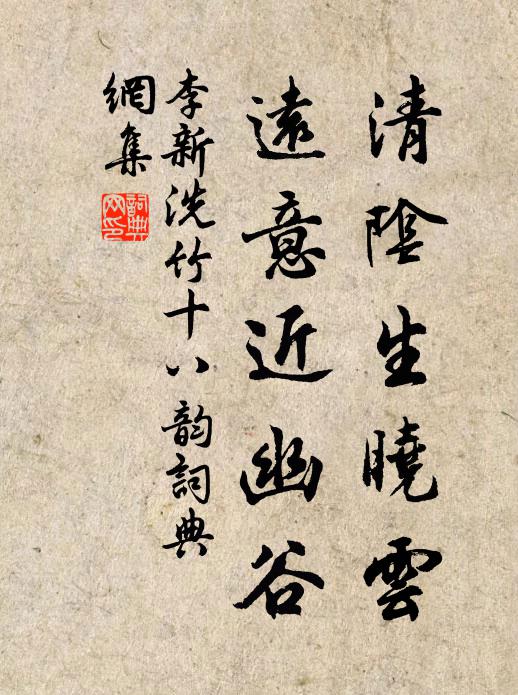 清陰生曉雲
遠意近幽谷
李新洗竹十八韵詞典
網集
詞典網印